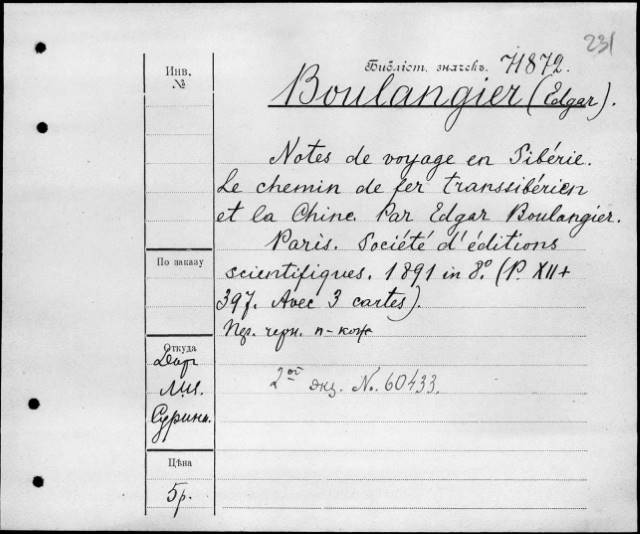 231
Инв.
№
Библіот. значекъ. 71872.
Boulangier (Edgar).
Notes de voyage en Sibérie.
Le chemin de fer transsibérien
et la Chine. Par Edgar Boulangier.
Paris. Société d'éditions
scientifiques. 1891 in 8º. (P. XII+
397. Avec 3 cartes).
черн. п-кож
2ой экз. No. 60433.
По заказу
Откуда
Дар
Цѣна
5р.